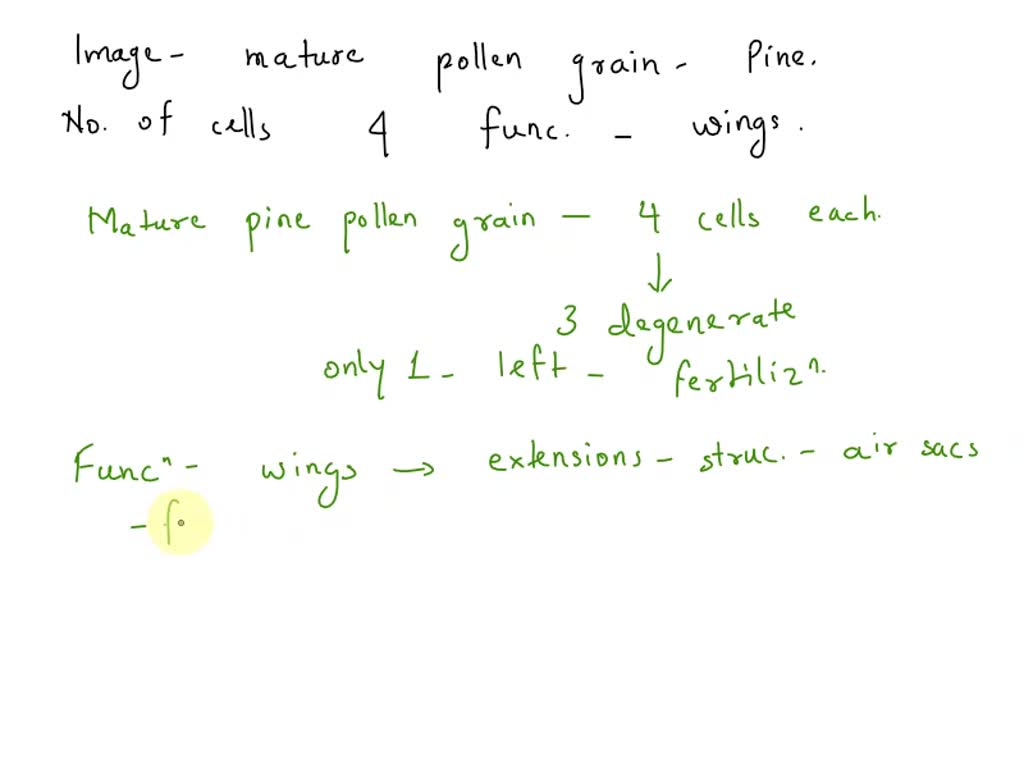 Image - mature pollen grain - Pine.
No. of cells 4 func. - wings.
Mature pine pollen grain - 4 cells each.
↓
3 degenerate
only 1 - left - fertilizⁿ.
Funcⁿ - wings → extensions - struc. - air sacs
- f